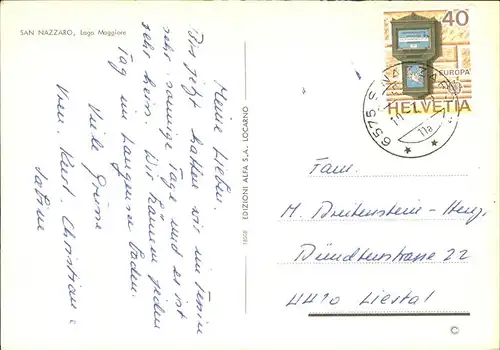 SAN NAZZARO, Lago Maggiore
Meine Lieben.
Bis jetzt hatten wir im Tessin
sehr sonnige Tage und es ist
sehr heiss. Wir können jeden
Tag im Langensee baden.
Viele Grüsse
Kurt. Christian &
Sabine
1808 EDIZIONI ALFA S.A., LOCARNO
40
EUROPA
HELVETIA
6575
11a
Fam.
M. Breitenstein-Herz.
Bündtenstrasse 22
4410 Liestal
©